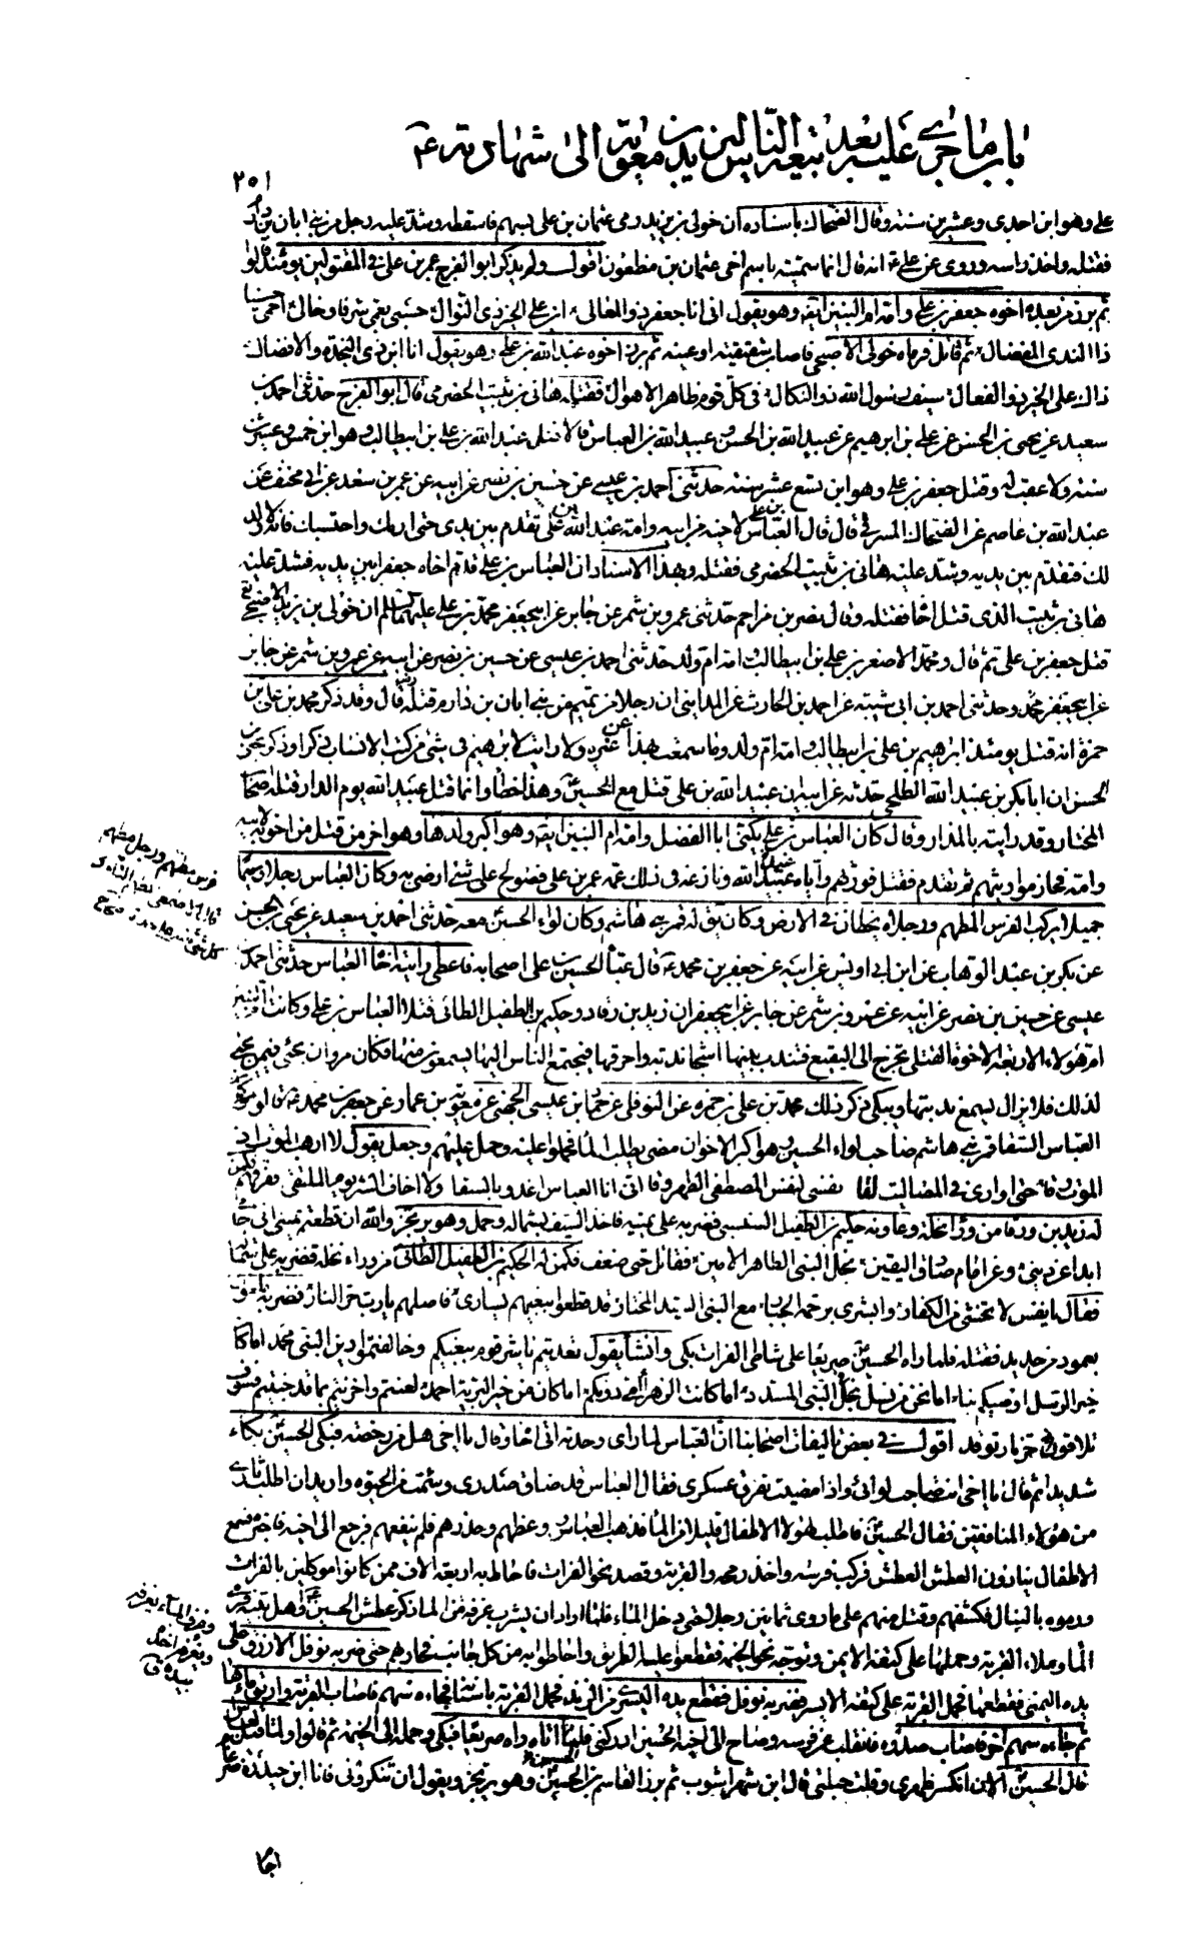 باب ما جرى عليه بعد بيعة الناس ليزيد بن معوية الى شهادته ع
٢٠١
على وهو ابن احدى وعشرين سنة وقال الضحاك باسناده ان خولى بن يزيد رمى عثمان بن على بسهم فاسقطه وشد عليه رجل من بنى ابان بن دارم
فقتله واخذ راسه وروى عن على ع انه قال انما سميته باسم اخى عثمان بن مظعون اقول ولم يذكر ابو الفرج عمر بن على فى المقتولين يومئذ قالوا
ثم برز من بعده اخوه جعفر بن على وامه ام البنين ايضا وهو يقول انى انا جعفر ذو المعالى ابن على الخير ذى النوال حسبى بعمى شرفا وخالى احمى حسينا
ذا الندى المفضال ثم قاتل فرماه خولى الاصبحى فاصاب شقيقته او عينه ثم برز اخوه عبد الله بن على وهو يقول انا ابن ذى النجدة والافضال
ذاك على الخير ذو الفعال سيف رسول الله ذو النكال فى كل قوم ظاهر الاهوال فقتله هانى بن ثبيت الحضرمى قال ابو الفرج حدثنى احمد بن
سعيد عن يحيى بن الحسن عن على بن ابرهيم عن عبيد الله بن الحسن وعبيد الله بن العباس قالا قتل عبد الله بن على بن ابيطالب وهو ابن خمس وعشرين
سنة ولا عقب له وقتل جعفر بن على وهو ابن تسع عشر سنة حدثنى احمد بن عيسى عن حسين بن نصر عن ابيه عن عمر بن سعد عن ابى مخنف عن
عبد الله بن عاصم عن الضحاك المشرقى قال قال العباس بن على لاخيه من ابيه وامه عبد الله بن على تقدم بين يدى حتى اراك واحتسبك فانه لا ولد
لك فتقدم بين يديه وشد عليه هانى بن ثبيت الحضرمى فقتله وبهذا الاسناد ان العباس بن على قدم اخاه جعفرا بين يديه فشد عليه
هانى بن ثبيت الذى قتل اخاه فقتله وقال نصر بن مزاحم حدثنى عمرو بن شمر عن جابر عن ابيجعفر محمد بن على عليهما السلم ان خولى بن يزيد الاصبحى
قتل جعفر بن على ثم قال ومحمد الاصغر بن على بن ابيطالب امه ام ولد حدثنى احمد بن عيسى عن حسين بن نصر عن ابيه عن عمرو بن شمر عن جابر
عن ابيجعفر محمد وحدثنى احمد بن ابى شيبة عن احمد بن الحارث عن المداينى ان رجلا من تميم من بنى ابان بن دارم قتله قال وقد ذكر محمد بن على بن
حمزة انه قتل يومئذ ابرهيم بن على بن ابيطالب وامه ام ولد وما سمعت بهذا عن غيره ولا رايت لابرهيم فى شئ من كتب الانساب ذكرا وذكر يحيى بن
الحسن ان ابا بكر بن عبيد الله الطلحى حدثه عن ابيه ان عبيد الله بن على قتل مع الحسين وهذا خطأ وانما قتل عبيد الله يوم الدار قتله اصحاب
المختار وقد رايته بالمذار وقال كان العباس بن على يكنى ابا الفضل وامه ام البنين ايضا وهو اكبر ولدها وهو اخر من قتل من اخوته لابيه
وامه فحاز مواريثهم ثم تقدم فقتل فورثهم واياه عبيد الله ونازعه فى ذلك عمه عمر بن على فصولح على شئ ارضى به وكان العباس رجلا وسيما
جميلا يركب الفرس المطهم ورجلاه يخطان فى الارض وكان يق له قمر بنى هاشم وكان لواء الحسين معه حدثنى احمد بن سعيد عن يحيى بن الحسن
عن بكر بن عبد الوهاب عن ابن ابى اويس عن ابيه عن جعفر بن محمد ع قال عبأ الحسين بن على اصحابه فاعطى رايته اخاه العباس حدثنى احمد بن
عيسى عن حسين بن نصر عن ابيه عن عمرو بن شمر عن جابر عن ابيجعفر ان زيد بن رقاد وحكيم بن الطفيل الطائى قتلا العباس بن على وكانت ام البنين
ام هؤلاء الاربعة الاخوة القتلى تخرج الى البقيع فتندب بنيها اشجا ندبة واحرقها فيجتمع الناس اليها يسمعون منها فكان مروان يجئ فيمن يجئ
لذلك فلا يزال يسمع ندبتها ويبكى ذكر ذلك محمد بن على بن حمزه عن النوفلى عن حماد بن عيسى الجهنى عن معوية بن عمار عن جعفر بن محمد ع قالوا وكان
العباس السقا قمر بنى هاشم صاحب لواء الحسين وهو اكبر الاخوان مضى يطلب الماء فحملوا عليه وحمل عليهم وجعل يقول لا ارهب الموت اذ
الموت رقا حتى اوارى فى المصاليت لقا نفسى لنفس المصطفى الطهر وقا انى انا العباس اغدو بالسقا ولا اخاف الشر يوم الملتقى ففرقهم فكمن
له زيد بن ورقا من وراء نخلة وعاونه حكيم بن الطفيل السنبسى فضربه على يمينه فاخذ السيف بشماله وحمل وهو يرتجز والله ان قطعتم يمينى انى احامى
ابدا عن دينى وعن امام صادق اليقين نجل النبى الطاهر الامين فقاتل حتى ضعف فكمن له الحكيم بن الطفيل الطائى من وراء نخلة فضربه على شماله
فقال يا نفس لا تخشى من الكفار وابشرى برحمة الجبار مع النبى السيد المختار قد قطعوا ببغيهم يسارى فاصلهم يا رب حر النار فضربه ملعون
بعمود من حديد فقتله فلما راه الحسين صريعا على شاطى الفرات بكى وانشأ يقول تعديتم يا شر قوم ببغيكم وخالفتموا دين النبى محمد اما كان
خير الرسل اوصيكم بنا اما نحن من نسل نجل النبى المسدد اما كانت الزهراء امى دونكم اما كان من خير البرية احمد لعنتم واخزيتم بما قد جنيتم فسوف
تلاقوا حر نار توقد اقول فى بعض تاليفات اصحابنا ان العباس لما راى وحدته اتى اخاه وقال يا اخى هل من رخصة فبكى الحسين بكاء
شديدا ثم قال يا اخى انت صاحب لوائى واذا مضيت تفرق عسكرى فقال العباس قد ضاق صدرى وسئمت من الحيوة واريد ان اطلب ثارى
من هؤلاء المنافقين فقال الحسين فاطلب لهؤلاء الاطفال قليلا من الماء فذهب العباس ووعظهم وحذرهم فلم ينفعهم فرجع الى اخيه فاخبره فسمع
الاطفال ينادون العطش العطش فركب فرسه واخذ رمحه والقربة وقصد نحو الفرات فاحاط به اربعة الاف ممن كانوا موكلين بالفرات
ورموه بالنبال فكشفهم وقتل منهم على ما روى ثمانين رجلا حتى دخل الماء فلما اراد ان يشرب غرفة من الماء ذكر عطش الحسين واهل بيته فرمى
الماء وملاء القربة وحملها على كتفه الايمن وتوجه نحو الخيمة فقطعوا عليه الطريق واحاطوا به من كل جانب فحاربهم حتى ضربه نوفل الازرق على
يده اليمنى فقطعها فحمل القربة على كتفه الايسر فضربه نوفل فقطع يده اليسرى من الزند فحمل القربة باسنانه فجاءه سهم فاصاب القربة واريق ماؤها
ثم جاءه سهم اخر فاصاب صدره فانقلب عن فرسه وصاح الى اخيه الحسين ادركنى فلما اتاه راه صريعا فبكى وحمله الى الخيمة ثم قالوا ولما قتل العباس
قال الحسين الان انكسر ظهرى وقلت حيلتى قال ابن شهراشوب ثم برز القاسم بن الحسين وهو يرتجز ويقول ان تنكرونى فانا ابن حيدرة ضرغام
اجام
فرس مطهم ورجل مطهم